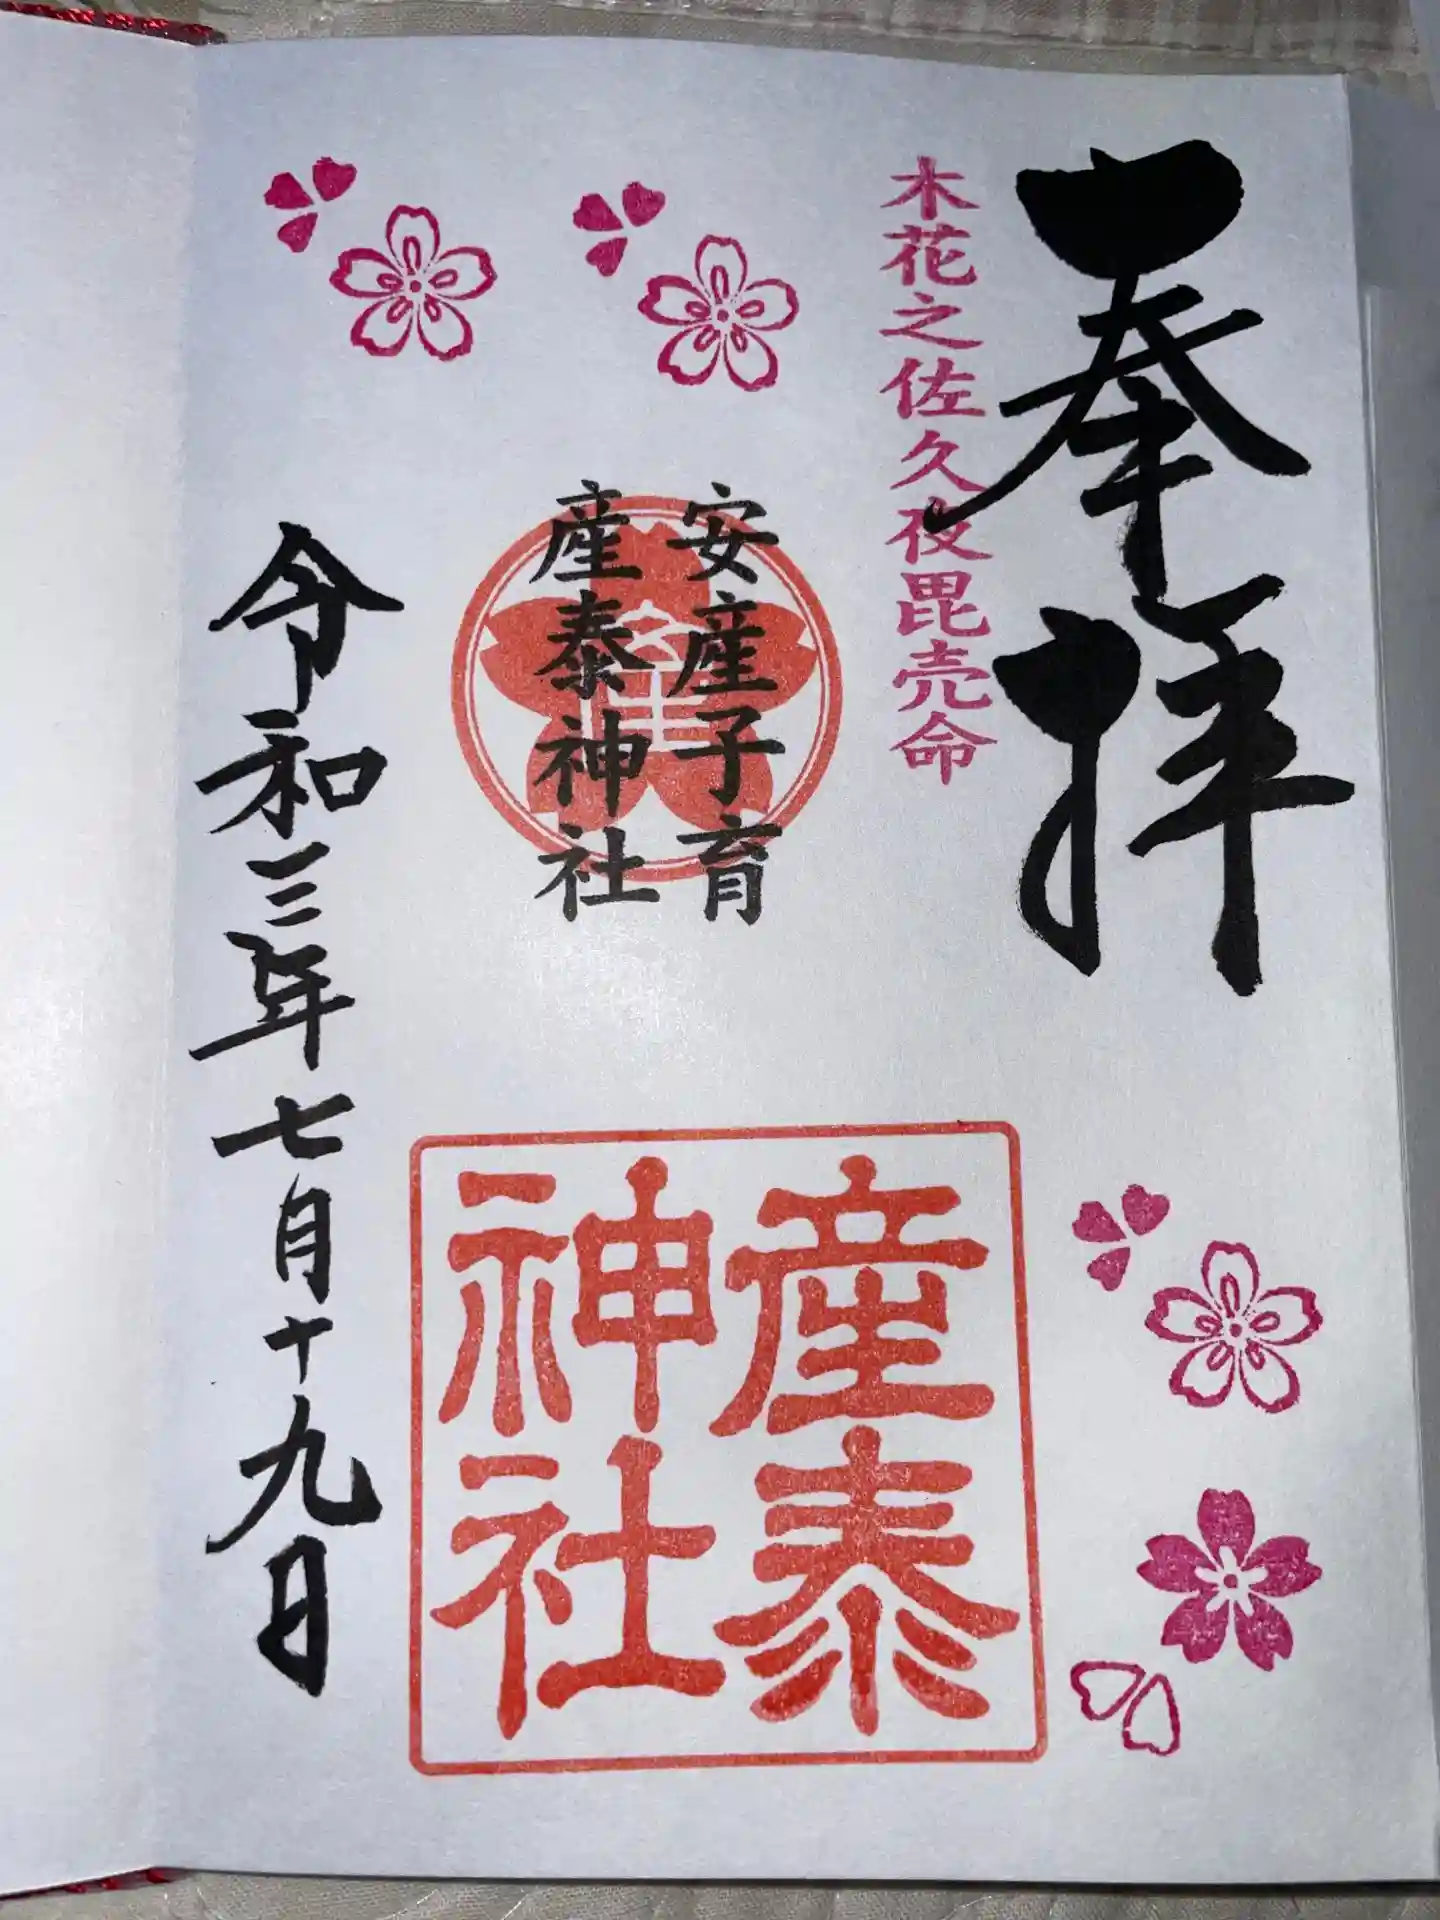 奉拝
木花之佐久夜毘売命
安産子育
産泰神社
産泰
神社
令和三年七月十九日